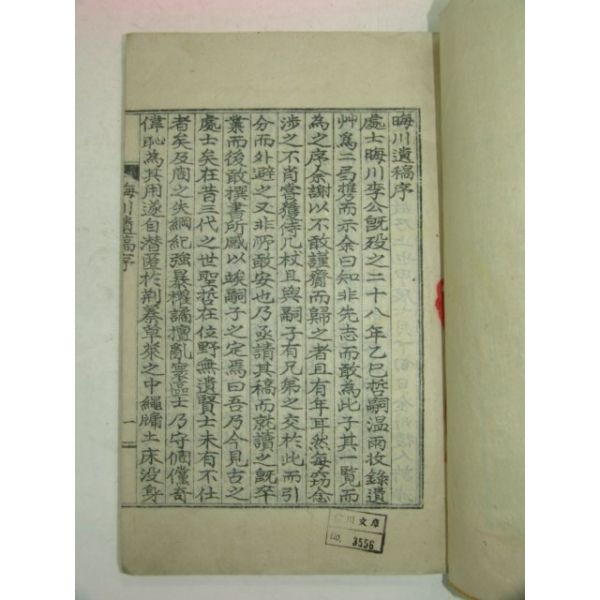 晦川遺稿序
處士晦川李公旣歿之二十八年乙巳哲嗣溫雨收錄遺
艸爲二弓攜而示余曰知非先志而敢爲此子其一覽而
為之序余謝以不敢謹齎而歸之者且有年耳然每竊念
涉之不肖嘗獲侍几杖且與嗣子有兄弟之交於此而引
分而外避之又非所敢安也乃亟請其稿而就讀之旣卒
業而後敢撰書所感以竢嗣子之定焉曰吾乃今見古之
處士矣在昔三代之世聖哲在位野無遺賢士未有不仕
者矣及周之失綱紀強暴權譎擅亂寰區士乃守倜儻奇
偉恥為其用遂自潛匿於荊蓁草萊之中繩牖土床没身
晦川遺稿序
一
川文庫
NO. 3556